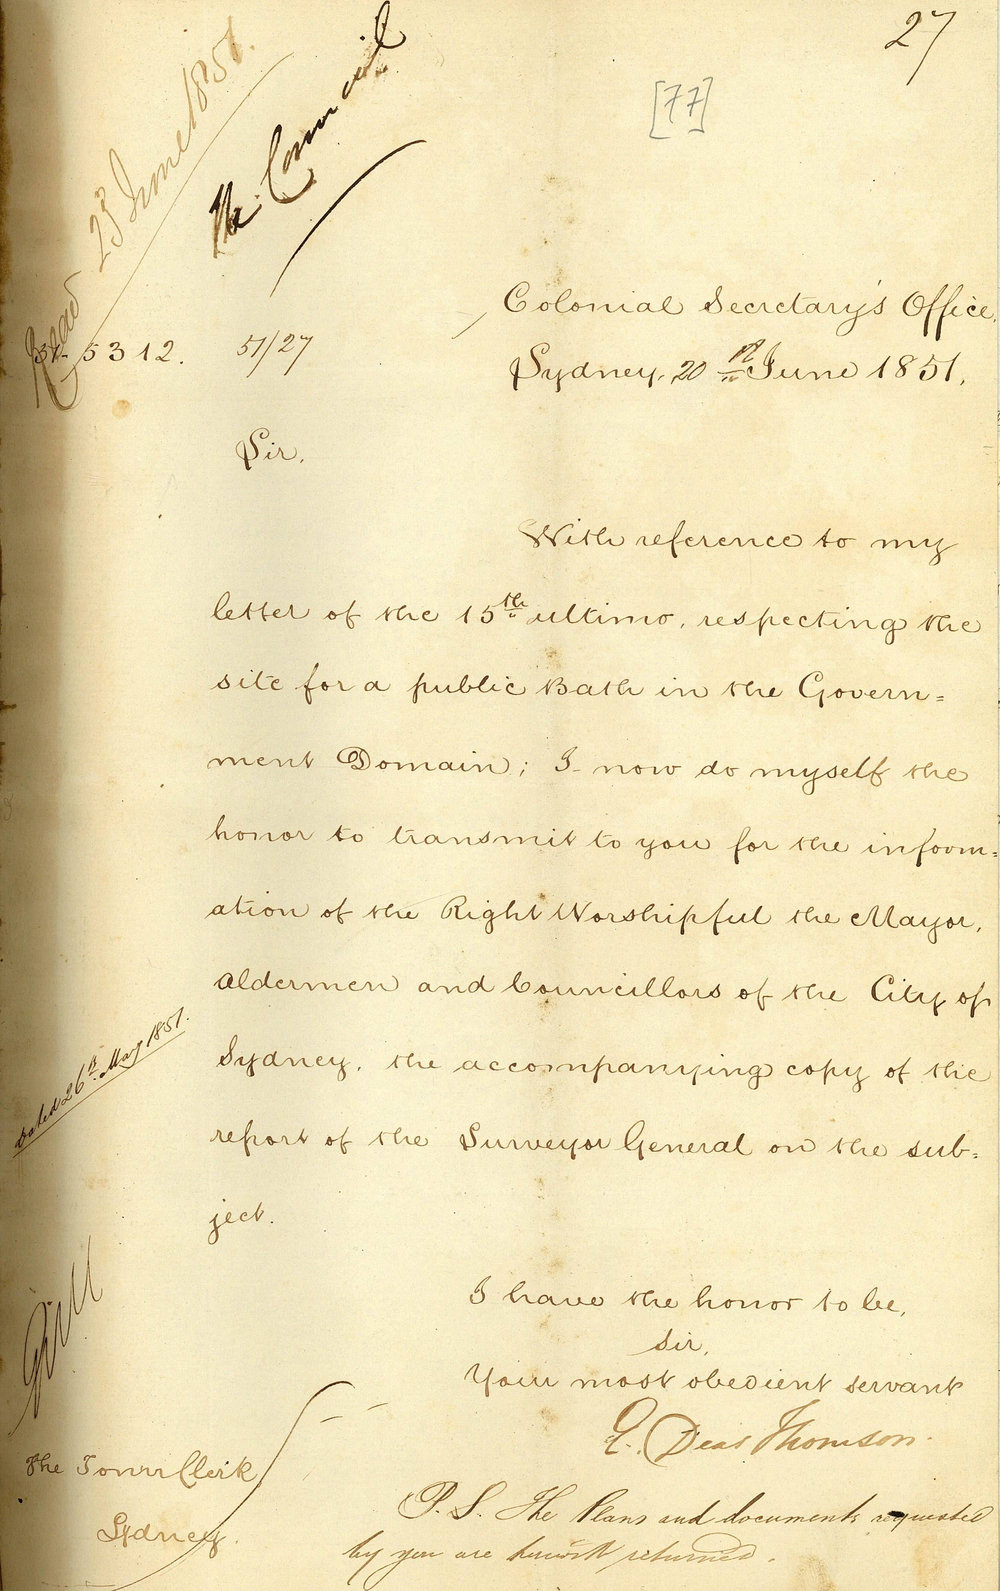 27
[77]
Read 23 June 1851.
The Council
51-5312. 51/27
Colonial Secretary's Office,
Sydney, 20th June 1851.
Sir,
With reference to my
letter of the 15th ultimo, respecting the
site for a public Bath in the Govern=
ment Domain; I now do myself the
honor to transmit to you for the inform=
ation of the Right Worshipful the Mayor,
Aldermen and Councillors of the City of
Sydney, the accompanying copy of the
Dated 26th May 1851.
report of the Surveyor General on the sub=
ject.
I have the honor to be,
Sir,
Your most obedient servant
E. Deas Thomson.
The Town Clerk
Sydney.
P.S. The Plans and documents requested
by you are herewith returned.